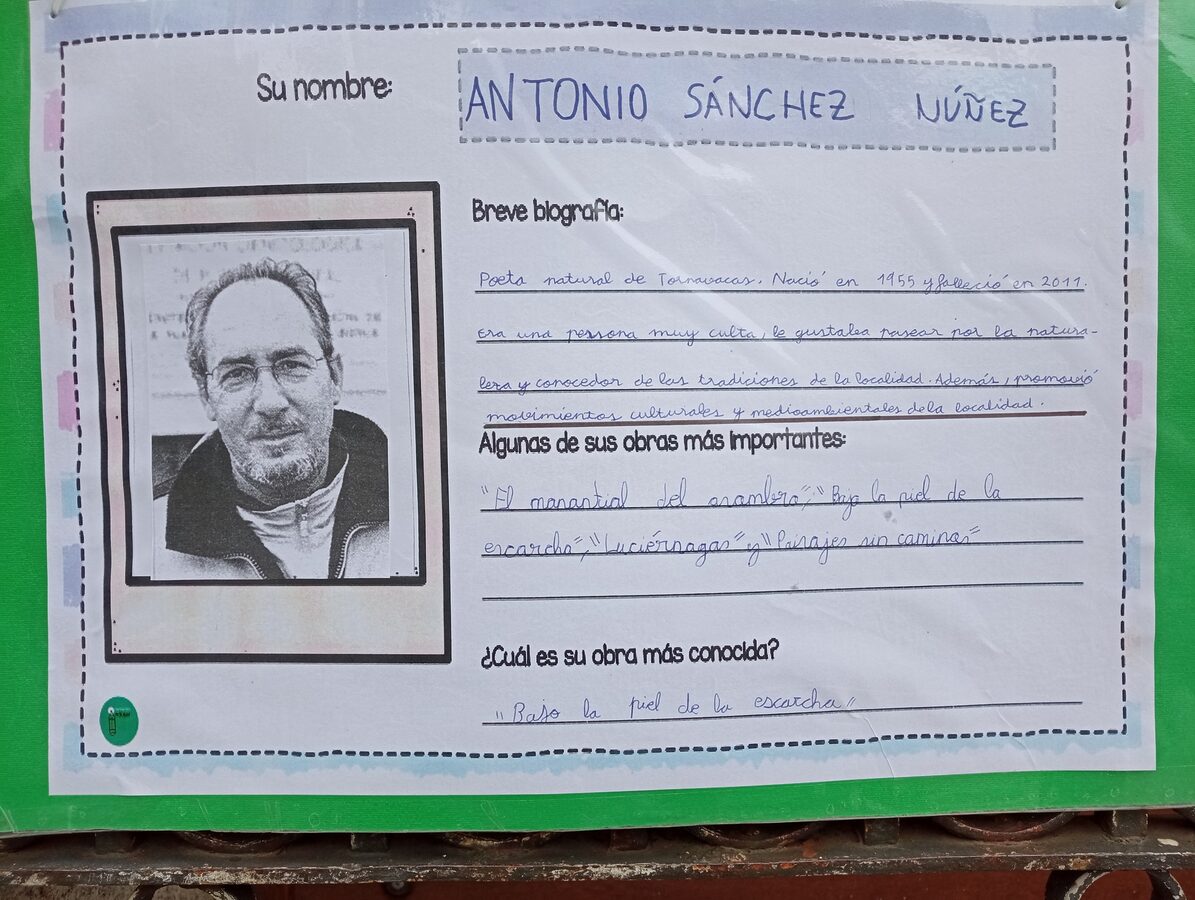 Su nombre:
ANTONIO SÁNCHEZ NÚÑEZ
Breve biografía:
Poeta natural de Tornavacas. Nació en 1955 y falleció en 2011.
Era una persona muy culta, le gustaba pasear por la natura-
leza y conocedor de las tradiciones de la localidad. Además, promovió
movimientos culturales y medioambientales de la localidad.
Algunas de sus obras más importantes:
"El manantial del", "Bajo la piel de la
escarcha", "Luciérnagas" y "Paisajes sin caminos"
¿Cuál es su obra más conocida?
"Bajo la piel de la escarcha"